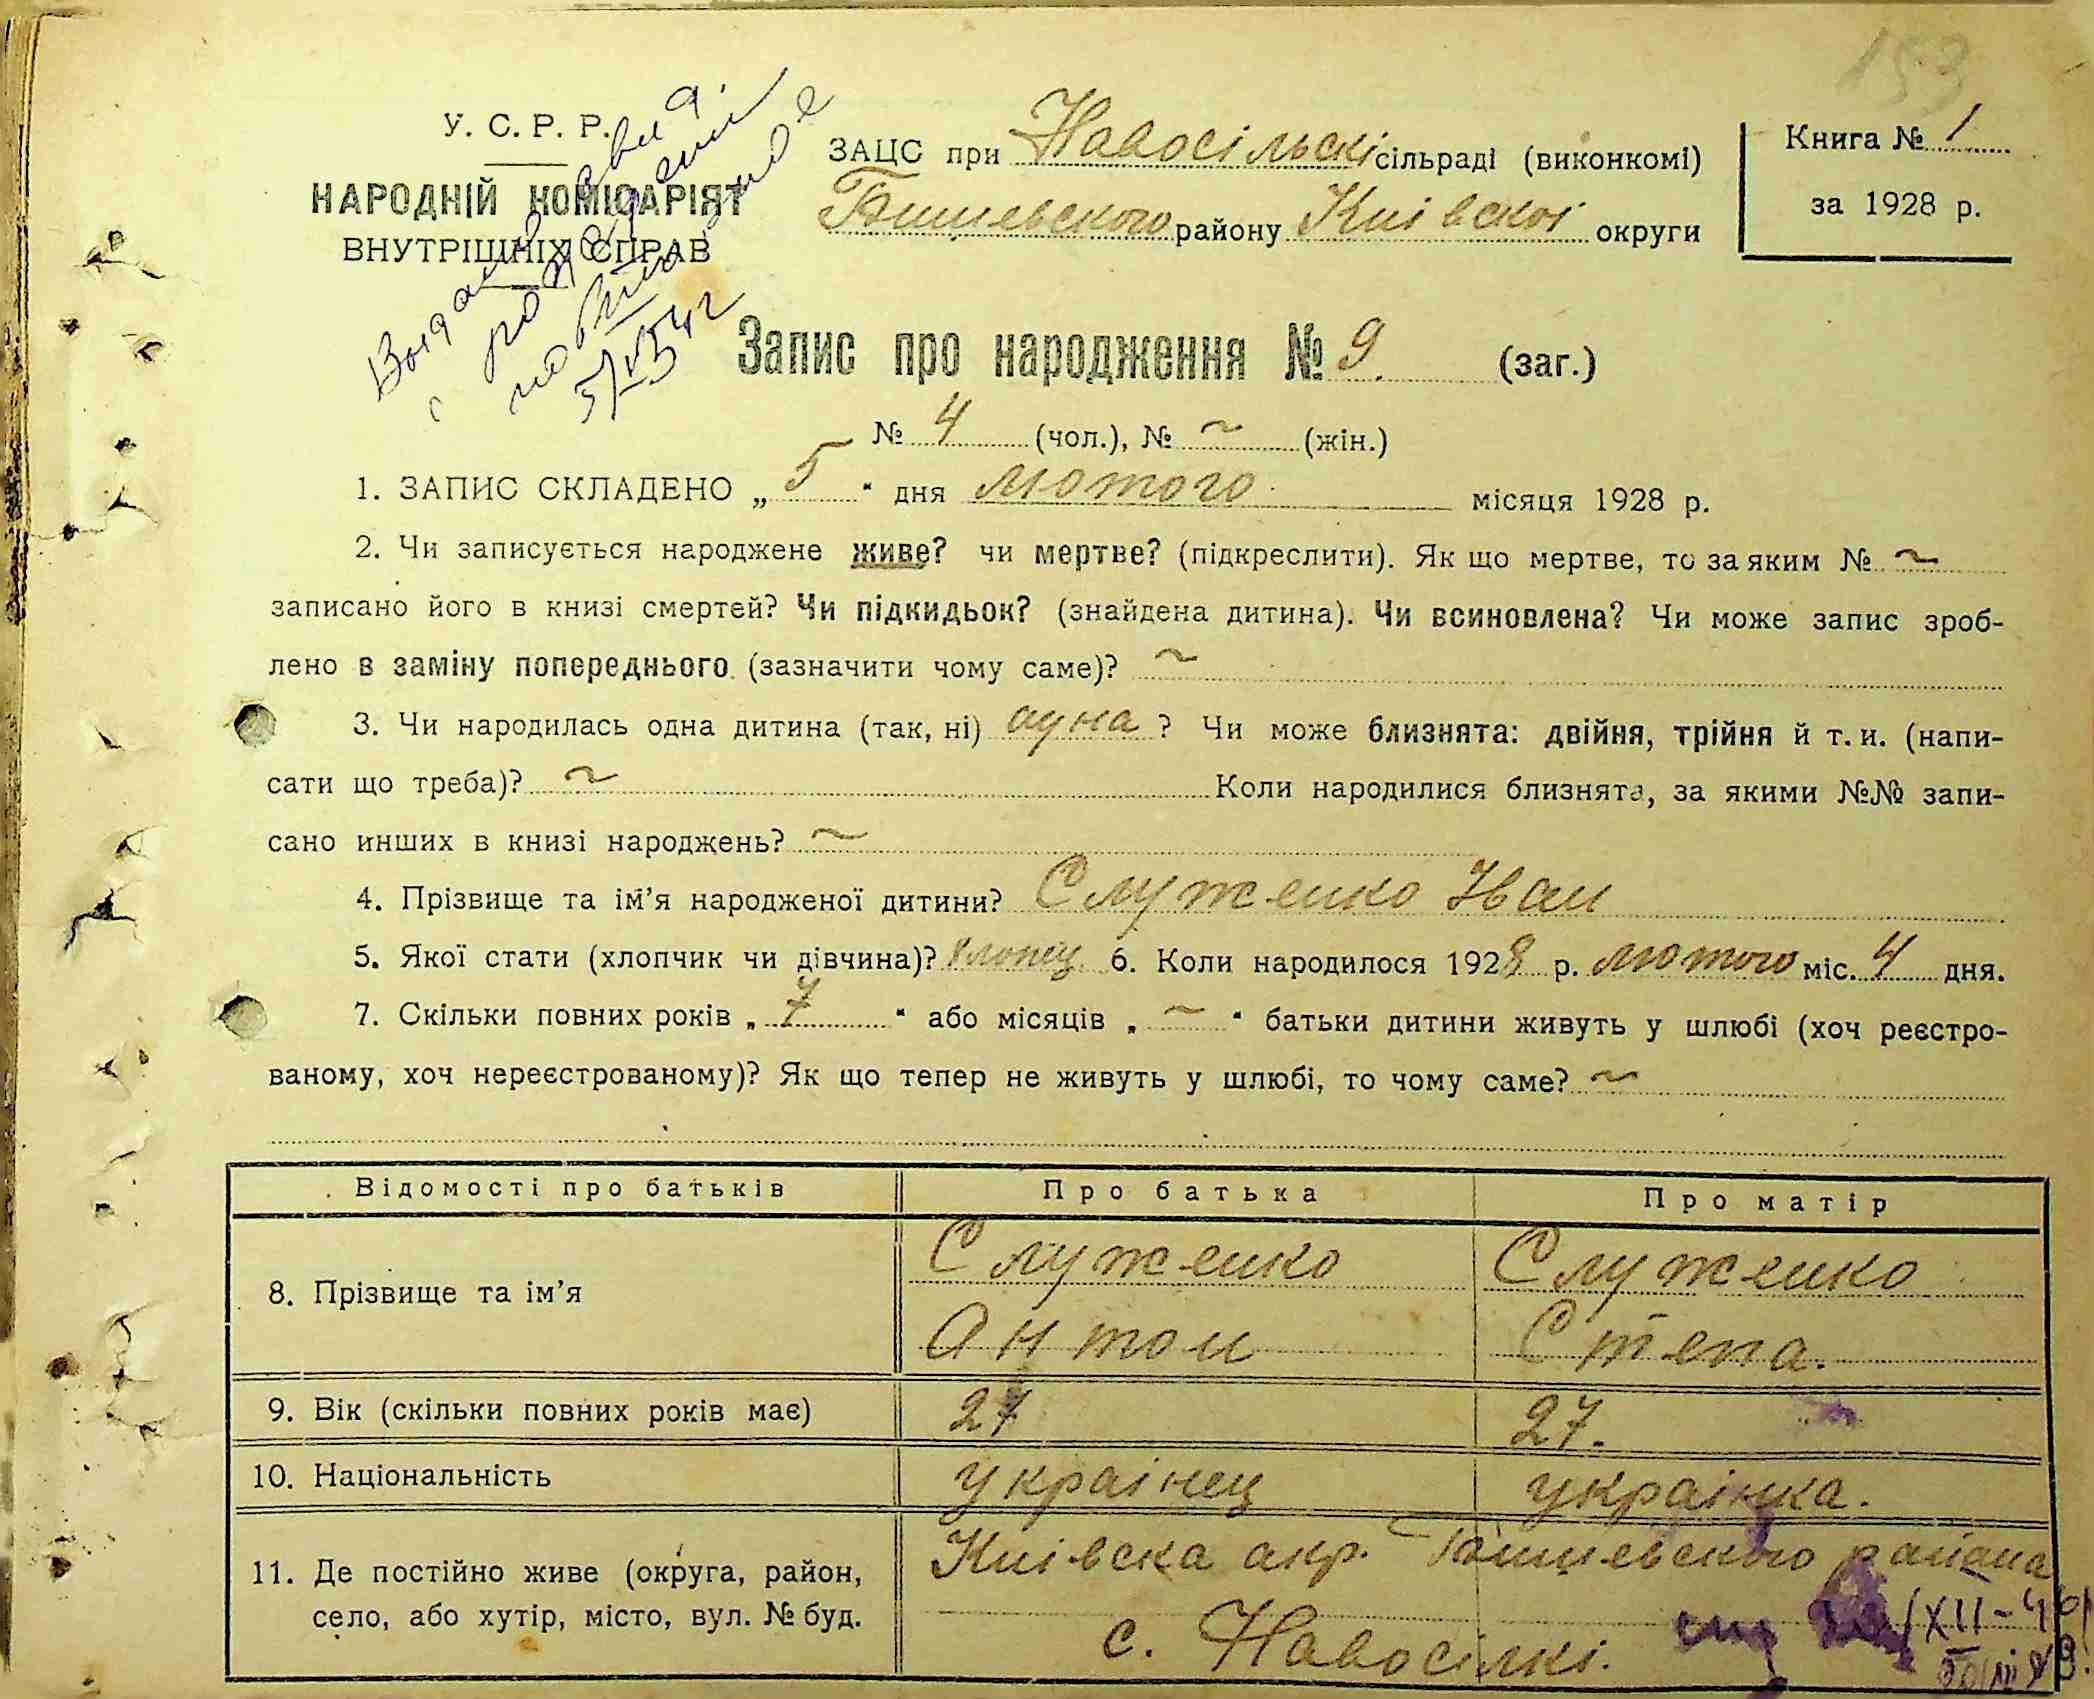 153
У. С. Р. Р.
НАРОДНІЙ КОМІСАРІЯТ
ВНУТРІШНІХ СПРАВ
ЗАЦС при Навосільскі сільраді (виконкомі)
Бишевского району Київскої округи
Книга № 1
за 1928 р.
Выдано
с рождении
повторное
5/VI 54 г
Запис про народження № 9 (заг.)
№ 4 (чол.), № ~ (жін.)
1. ЗАПИС СКЛАДЕНО „ 5 “ дня лютого місяця 1928 р.
2. Чи записується народжене живе? чи мертве? (підкреслити). Як що мертве, то за яким № ~
записано його в книзі смертей? Чи підкидьок? (знайдена дитина). Чи всиновлена? Чи може запис зроб-
лено в заміну попереднього (зазначити чому саме)? ~
3. Чи народилась одна дитина (так, ні) одна ? Чи може близнята: двійня, трійня й т. и. (напи-
сати що треба)? ~ Коли народилися близнята, за якими №№ запи-
сано инших в книзі народжень? ~
4. Прізвище та ім'я народженої дитини? Служенко Іван
5. Якої стати (хлопчик чи дівчина)? хлопец 6. Коли народилося 1928 р. лютого міс. 4 дня.
7. Скільки повних років „ 7 “ або місяців „ ~ “ батьки дитини живуть у шлюбі (хоч реєстро-
ваному, хоч нереєстрованому)? Як що тепер не живуть у шлюбі, то чому саме? ~
Відомості про батьків Про батька Про матір
8. Прізвище та ім'я Служенко Антон Служенко Степа.
9. Вік (скільки повних років має) 27 27.
10. Національність українец українка.
11. Де постійно живе (округа, район,
село, або хутір, місто, вул. № буд.
Київска акр. Бишевского района
с. Навосілкі.